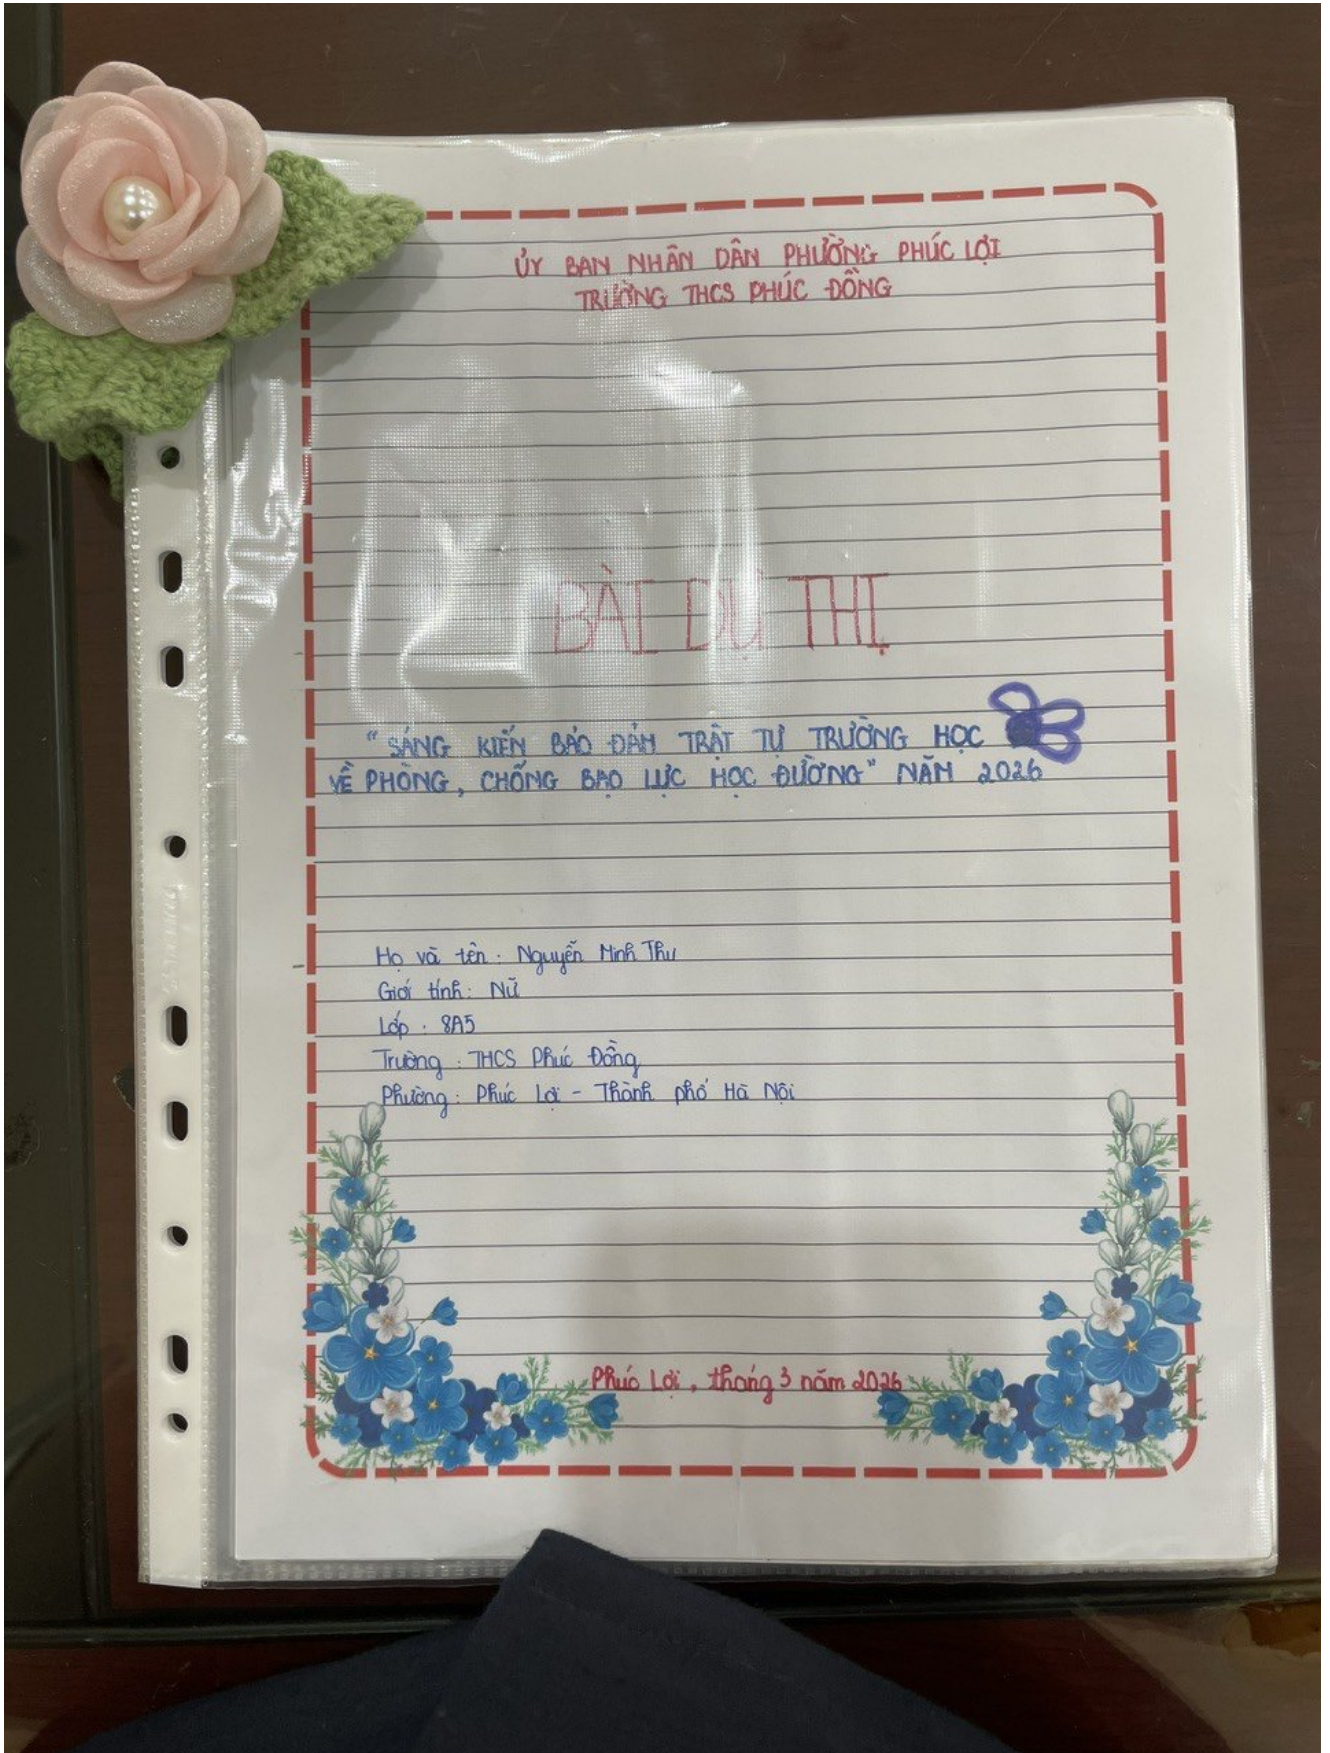 ỦY BAN NHÂN DÂN PHƯỜNG PHÚC LỢI
TRƯỜNG THCS PHÚC ĐỒNG
BÀI DỰ THI
“SÁNG KIẾN BẢO ĐẢM TRẬT TỰ TRƯỜNG HỌC
VỀ PHÒNG, CHỐNG BẠO LỰC HỌC ĐƯỜNG” NĂM 2026
Họ và tên: Nguyễn Minh Thư
Giới tính: Nữ
Lớp: 8A5
Trường: THCS Phúc Đồng
Phường: Phúc Lợi - Thành phố Hà Nội
Phúc Lợi, tháng 3 năm 2026